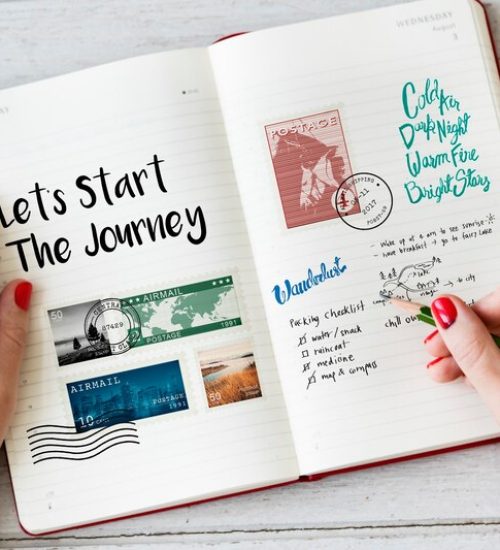 Let's Start
The Journey
50
07429
AIRMAIL
POSTAGE 1991
AIRMAIL
POSTAGE
10
CENTS
1991
50
WEDNESDAY
August
3
POSTAGE
SHIPPING
08-11
2017
Cold Air
Dark Night
Warm Fire
Bright Stars
- Wake up at 6 am to see sunrise
- have breakfast → go to fairy Lake
Wanderlust
Packing checklist
water / snack
raincoat
medicine
map & compass
to city
chill